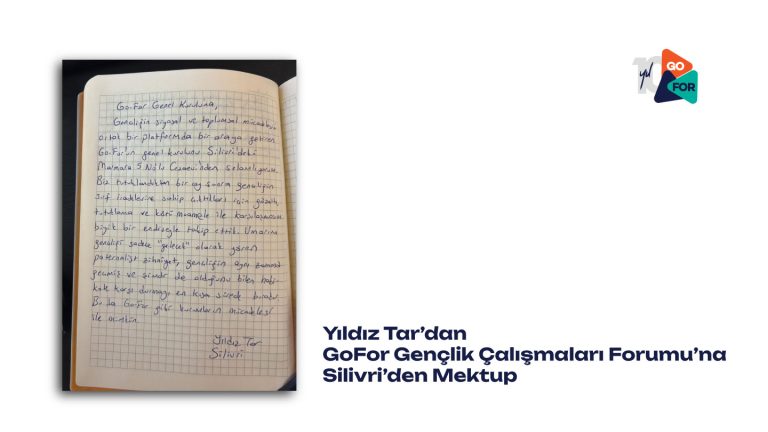 Go-For Genel Kuruluna,
Gençliğin siyasal ve toplumsal mücadelesini
ortak bir platformda bir araya getiren
Go-For'un genel kurulunu Silivri'deki
Marmara 5 No'lu Cezaevi'nden selamlıyorum.
Biz tutuklandıktan bir ay sonra gençliğin
sırf iradelerine sahip çıktıkları için gözaltı,
tutuklama ve kötü muamele ile karşılaşmasını
büyük bir endişeyle takip ettik. Umarım
gençliği sadece "gelecek" olarak gören
paternalist zihniyet, gençliğin aynı zamanda
geçmiş ve şimdi de olduğunu bilen
karşı durmayı en kısa sürede bırakır.
Bu da Go-For gibi kurumların mücadelesi
ile mümkün.
Yıldız Tar
Silivri
10 yıl
GO
FOR
Yıldız Tar’dan
GoFor Gençlik Çalışmaları Forumu’na
Silivri’den Mektup